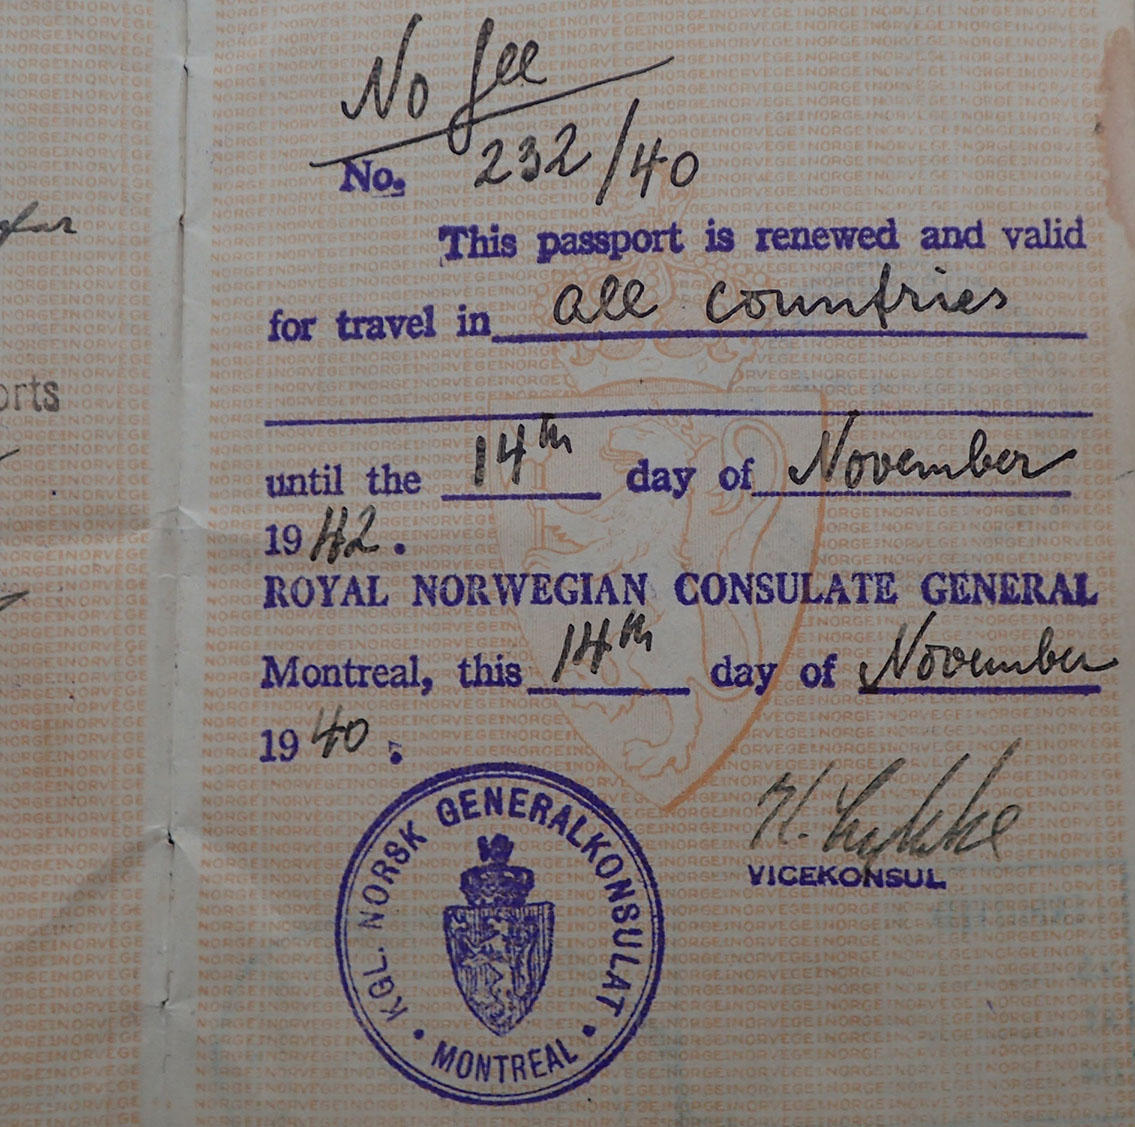 No fee
No. 232/40
This passport is renewed and valid
for travel in all countries
until the 14th day of November
1942.
ROYAL NORWEGIAN CONSULATE GENERAL
Montreal, this 14th day of November
1940.
VICEKONSUL
KGL. NORSK GENERALKONSULAT
• MONTREAL •
orts